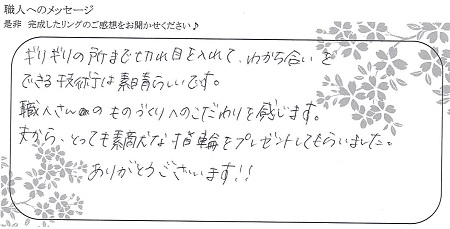 職人へのメッセージ
是非 完成したリングのご感想をお聞かせください♪
ギリギリの所まで切れ目を入れて、わかち合いを
できる技術は素晴らしいです。
職人さんのものづくりへのこだわりを感じます。
夫から、とっても素敵な指輪をプレゼントしてもらいました。
ありがとうございます!!